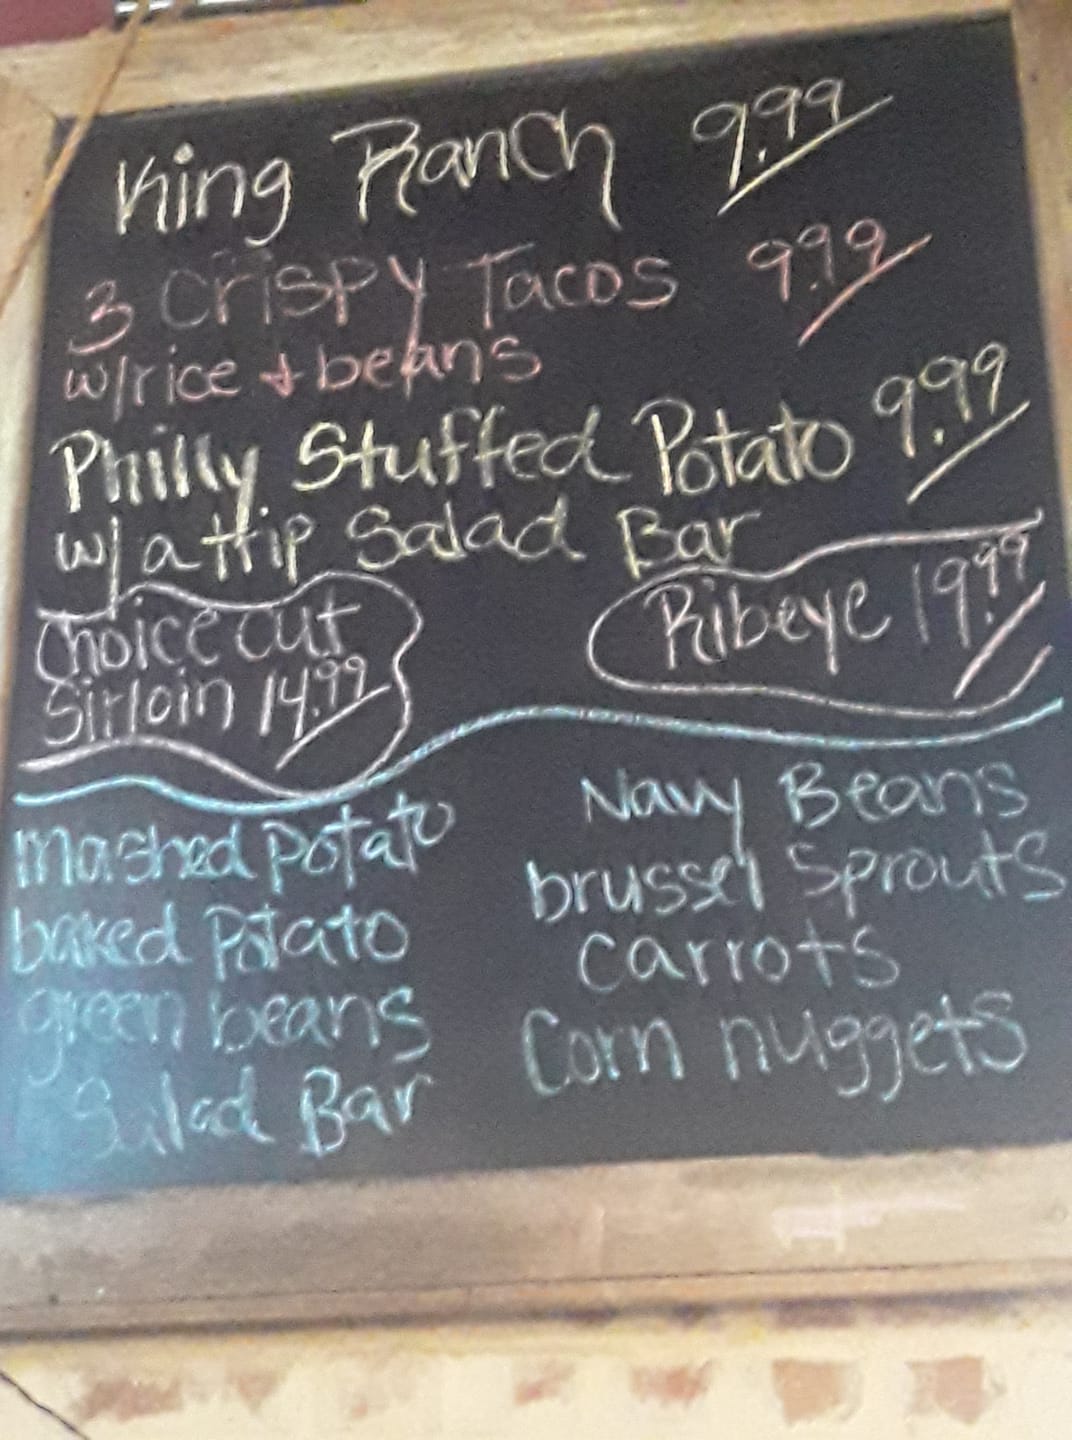 King Ranch 9.99
3 Crispy Tacos 9.99
w/rice & beans
Philly Stuffed Potato 9.99
w/ a trip Salad Bar
Choice cut
Sirloin 14.99
Ribeye 19.99
mashed potato
baked Potato
green beans
Salad Bar
Navy Beans
brussel Sprouts
Carrots
Corn nuggets